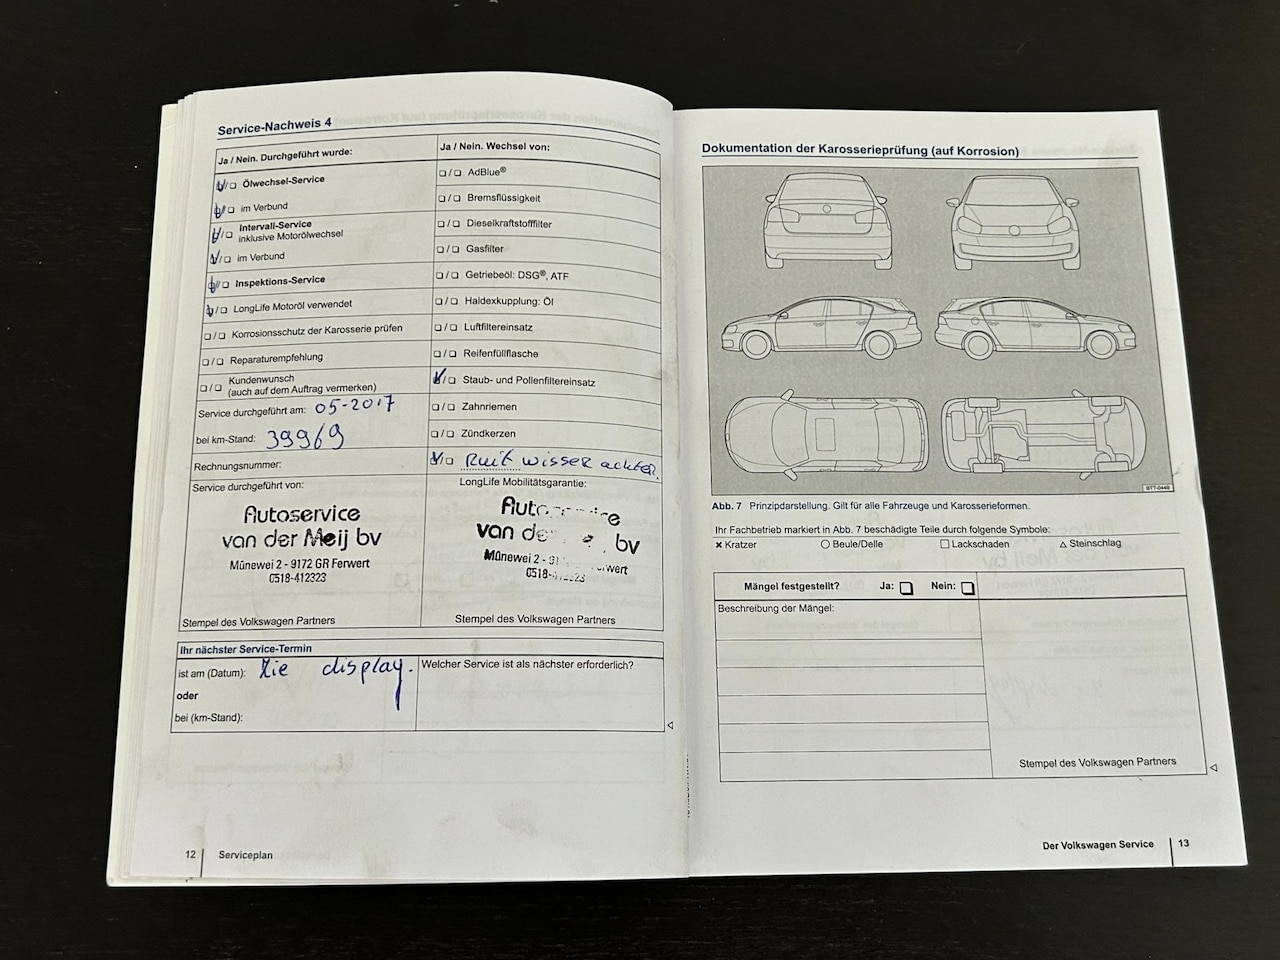 Service-Nachweis 4
Ja / Nein. Durchgeführt wurde:
☑/☐ Ölwechsel-Service
☑/☐ im Verbund
☑/☐ Intervall-Service
inklusive Motorölwechsel
☑/☐ im Verbund
☑/☐ Inspektions-Service
☑/☐ LongLife Motoröl verwendet
☐/☐ Korrosionsschutz der Karosserie prüfen
☐/☐ Reparaturempfehlung
☐/☐ Kundenwunsch
(auch auf dem Auftrag vermerken)
Service durchgeführt am: 05-2017
bei km-Stand: 39969
Rechnungsnummer:
Service durchgeführt von:
Autoservice
van der Meij bv
Mûnewei 2 - 9172 GR Ferwert
0518-412323
Stempel des Volkswagen Partners
Ja / Nein. Wechsel von:
☐/☐ AdBlue®
☐/☐ Bremsflüssigkeit
☐/☐ Dieselkraftstofffilter
☐/☐ Gasfilter
☐/☐ Getriebeöl: DSG®, ATF
☐/☐ Haldexkupplung: Öl
☐/☐ Luftfiltereinsatz
☐/☐ Reifenfüllflasche
☑/☐ Staub- und Pollenfiltereinsatz
☐/☐ Zahnriemen
☐/☐ Zündkerzen
☑/☐ Ruit wisser achter
LongLife Mobilitätsgarantie:
van de bv
Mûnewei 2
0518-
Stempel des Volkswagen Partners
Ihr nächster Service-Termin
ist am (Datum): Zie display.
oder
bei (km-Stand):
Welcher Service ist als nächster erforderlich?
12 Serviceplan
Dokumentation der Karosserieprüfung (auf Korrosion)
BTT-0449
Abb. 7 Prinzipdarstellung. Gilt für alle Fahrzeuge und Karosserieformen.
Ihr Fachbetrieb markiert in Abb. 7 beschädigte Teile durch folgende Symbole:
✖ Kratzer ○ Beule/Delle □ Lackschaden △ Steinschlag
Mängel festgestellt? Ja: ☐ Nein: ☐
Beschreibung der Mängel:
Stempel des Volkswagen Partners
Der Volkswagen Service 13